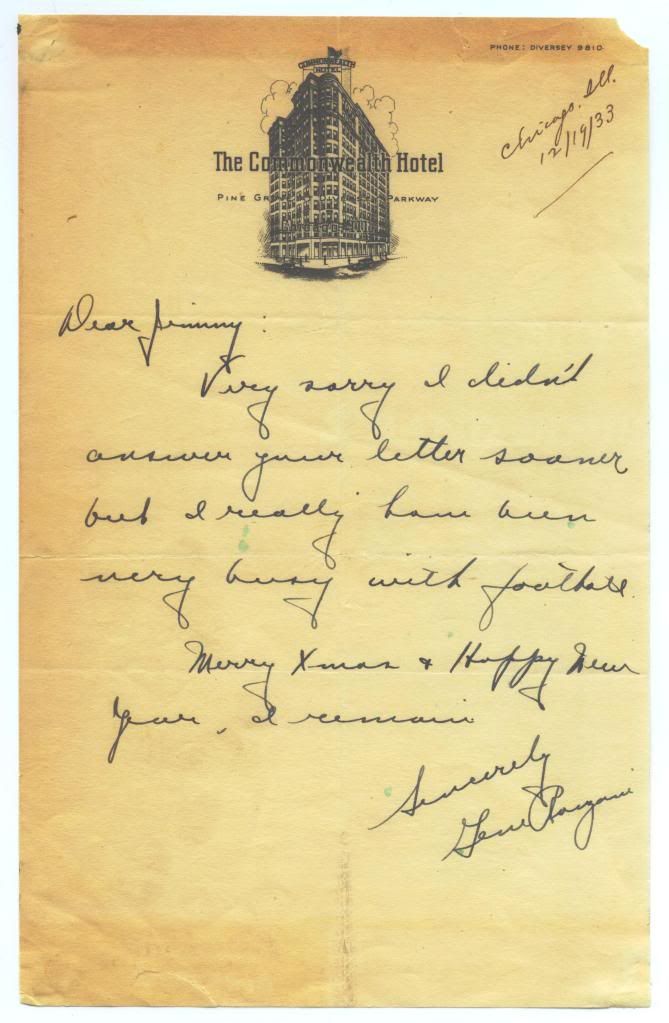 PHONE: DIVERSEY 9810
COMMONWEALTH
HOTEL
Chicago, Ill.
12/19/33
The Commonwealth Hotel
PINE GROVE DIVERSEY PARKWAY
Dear Jimmy:
Very sorry I didn't
answer your letter sooner
but I really have been
very busy with football.
Merry Xmas & Happy New
Year, I remain
Sincerely
Gene Ronzani